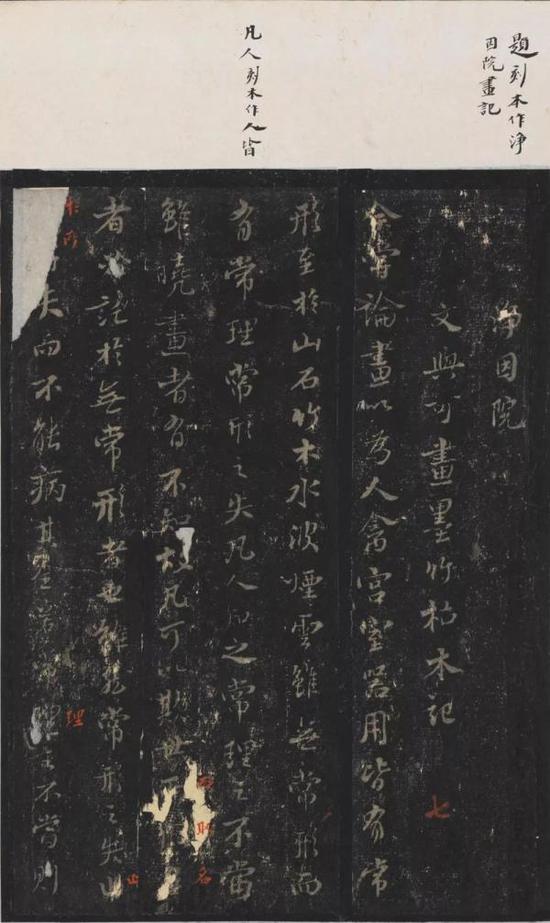 題刻本作淨
因院畫記
凡人刻本作人皆
淨因院
文與可畫墨竹枯木記 七
余嘗論畫以為人禽宮室器用皆有常
形至於山石竹木水波煙雲雖無常形而
有常理常形之失凡人知之常理之不當
雖曉畫者有不知故凡可以欺世而取名
者必託於無常形者也雖然常形之失止
於所失而不能病其全若常理之不當則